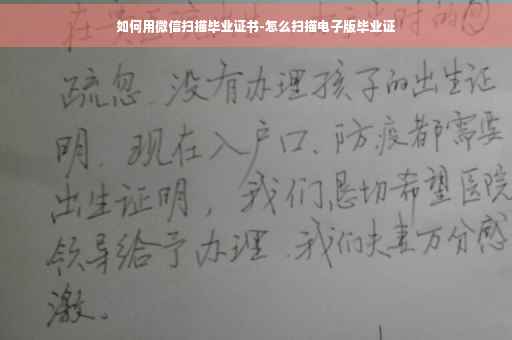 如何用微信扫描毕业证书-怎么扫描电子版毕业证
疏忽、没有办理孩子的出生证
明、现在入户口、防疫都需要
出生证明，我们恳切希望医院
领导给予办理、我们夫妻万分感
激。